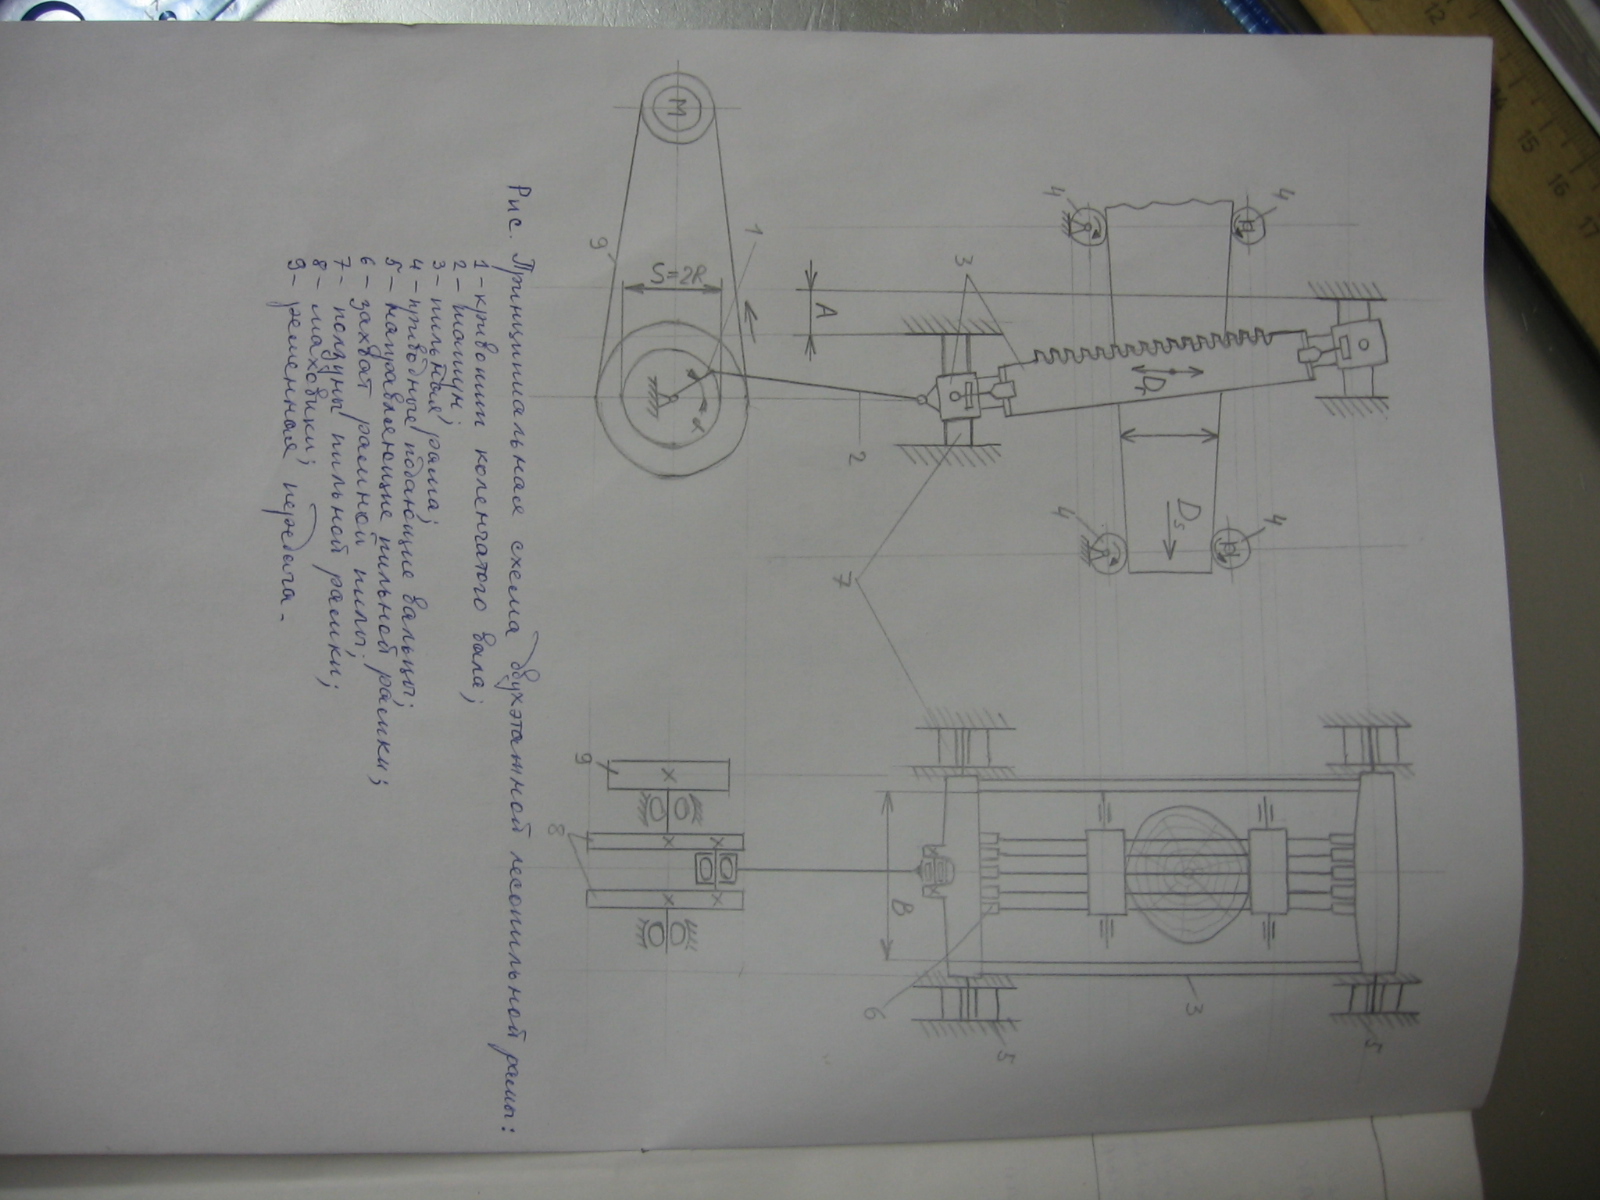 4
4
3
A
Dг
Ds
4
4
1
9
S=2R
M
α
2
7
5
3
B
6
5
9
8
Рис. Принципиальная схема двухэтажной лесопильной рамы:
1 – кривошип коленчатого вала;
2 – шатун;
3 – пильная рама;
4 – приводные подающие вальцы;
5 – направляющие пильной рамки;
6 – захват рамной пилы;
7 – ползуны пильной рамки;
8 – маховики;
9 – ременная передача.